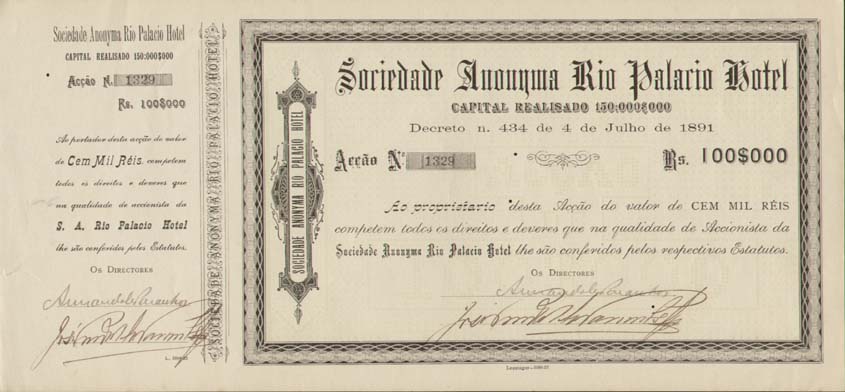 Sociedade Anonyma Rio Palacio Hotel
CAPITAL REALISADO 150:000$000
Acção N. 1329
Rs. 100$000
Ao portador desta acção do valor
de Cem Mil Réis, competem
todos os direitos e deveres que
na qualidade de accionista da
S. A. Rio Palacio Hotel
lhe são conferidos pelos Estatutos.
OS DIRECTORES
SOCIEDADE ANONYMA RIO PALACIO HOTEL
SOCIEDADE ANONYMA RIO PALACIO HOTEL
Sociedade Anonyma Rio Palacio Hotel
CAPITAL REALISADO 150:000$000
Decreto n. 434 de 4 de Julho de 1891
Acção Nº 1329 Rs. 100$000
Ao proprietario desta Acção do valor de CEM MIL RÉIS
competem todos os direitos e deveres que na qualidade de Accionista da
Sociedade Anonyma Rio Palacio Hotel lhe são conferidos pelos respectivos Estatutos.
OS DIRECTORES